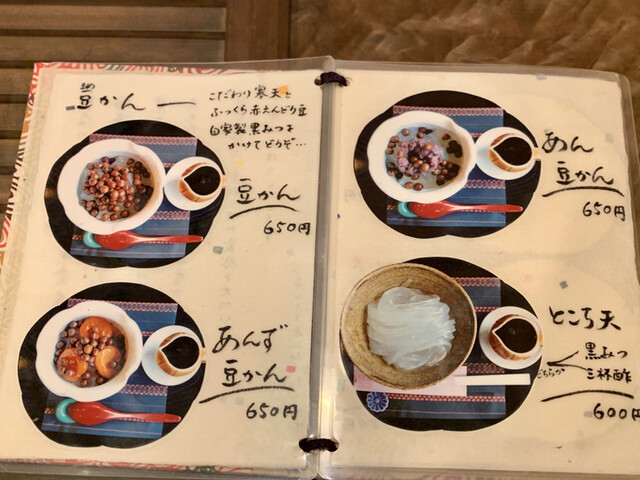 豆かん
こだわり寒天と
ふっくら赤えんどう豆
自家製黒みつを
かけてどうぞ…
豆かん
650円
あんず
豆かん
650円
あん
豆かん
650円
ところ天
黒みつ
三杯酢
どちらか
600円